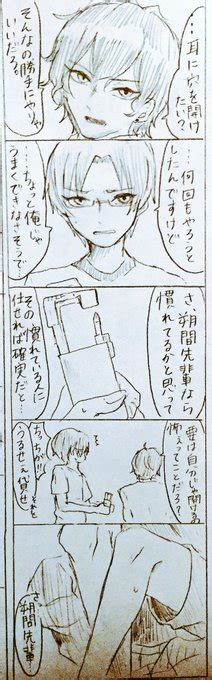 …耳に穴を開け
たい?
そんなの勝手にやりゃ
いいだろ。
…何回もやろうと
したんですけど
…ちょっと俺じゃ
うまくできなさそうで
さ、朔間先輩なら
慣れてるかと思って
その慣れている人に
任せれば確実だと…
要は自分じゃ開けるの
怖えってことだろ?
ちっちが!!!
うるせぇ貸せ
さ、朔間先輩